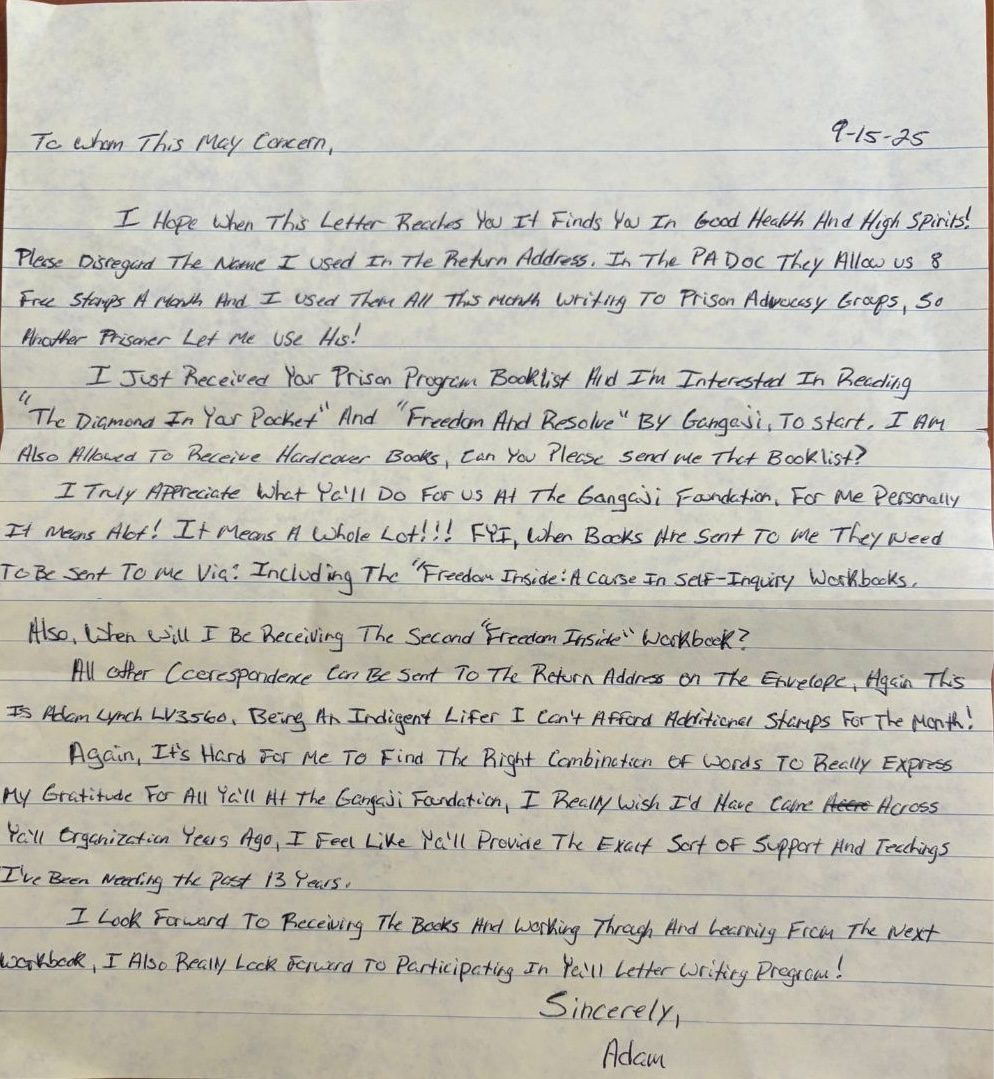 9-15-25
To Whom This May Concern,
I Hope When This Letter Reaches You It Finds You In Good Health And High Spirits!
Please Disregard The Name I Used In The Return Address. In The PA DOC They Allow us 8
Free Stamps A Month And I Used Them All This Month Writing To Prison Advocasy Groups, So
Another Prisoner Let Me Use His!
I Just Received Your Prison Program Booklist And I'm Interested In Reading
"The Diamond In Your Pocket" And "Freedom And Resolve" By Gangaji, To start. I Am
Also Allowed To Receive Hardcover Books, Can You Please Send Me That Booklist?
I Truly Appreciate What Ya'll Do For Us At The Gangaji Foundation. For Me Personally
It Means Alot! It Means A Whole Lot!!! FYI, When Books Are Sent To Me They Need
To Be Sent To Me Via: Including The "Freedom Inside: A Course In Self-Inquiry Workbooks.
Also, When Will I Be Receiving The Second "Freedom Inside" Workbook?
All other Ccerespondence Can Be Sent To The Return Address on The Envelope, Again This
Is Adam Lynch LV3560. Being An Indigent Lifer I Can't Afford Additional Stamps For The Month!
Again, It's Hard For Me To Find The Right Combination Of Words To Really Express
My Gratitude For All Ya'll At The Gangaji Foundation, I Really Wish I'd Have Came Across
Ya'll Organization Years Ago, I Feel Like Ya'll Provide The Exact Sort Of Support And Teachings
I've Been Needing the Past 13 Years.
I Look Forward To Receiving The Books And Working Through And Learning From The Next
Workbook, I Also Really Look Forward To Participating In Ya'll Letter Writing Program!
Sincerely,
Adam